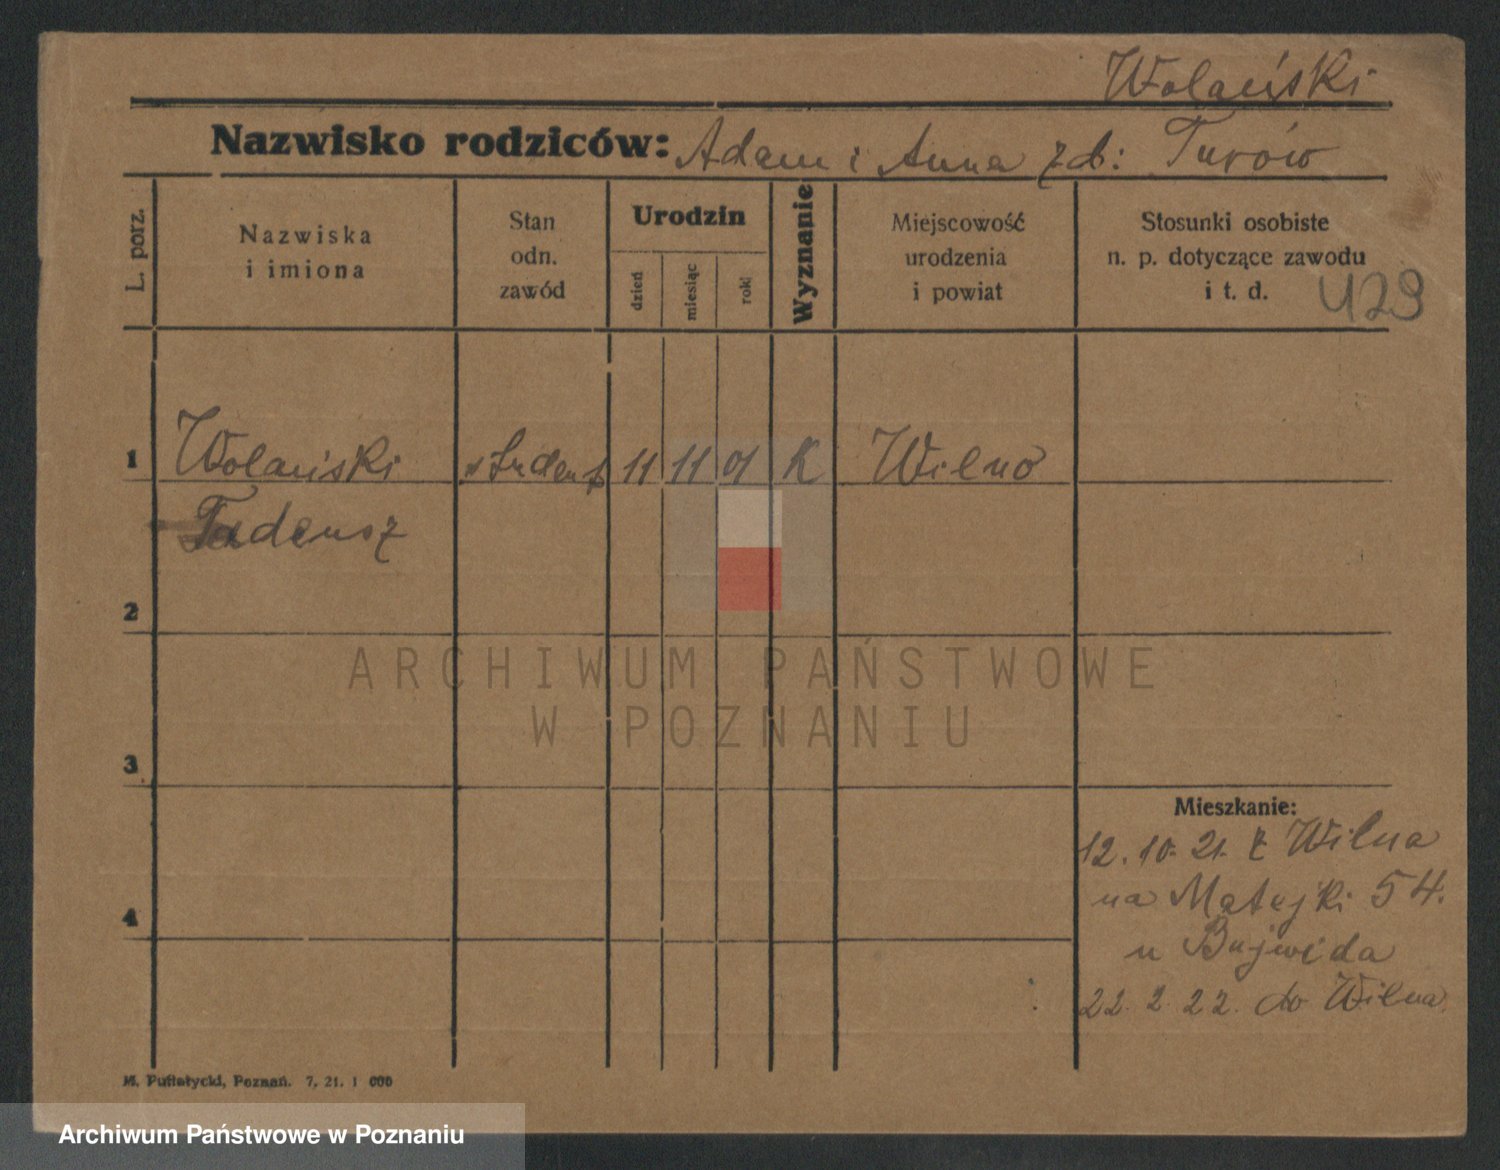 Wolański
Nazwisko rodziców: Adam i Anna zd: Turów
L. porz.
Nazwiska
i imiona
Stan
odn.
zawód
Urodzin
dzień
miesiąc
rok
Wyznanie
Miejscowość
urodzenia
i powiat
Stosunki osobiste
n. p. dotyczące zawodu
i t. d.
429
1 Wolański student 11 11 01 K Wilno
Tadeusz
2
ARCHIWUM PAŃSTWOWE
W POZNANIU
3
Mieszkanie:
12. 10. 21. z Wilna
na Matejki 54.
4
u Bujwida
22. 2 22. do Wilna
Poznań. 7. 21. 1 000
Archiwum Państwowe w Poznaniu